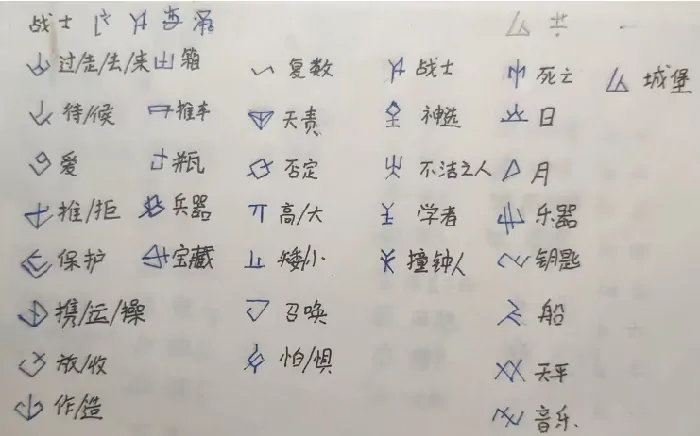 战士
过/走/去/来 箱 复数 战士 死亡 城堡
待/候 推车 天责 神选 日
爱 瓶 否定 不洁之人 月
推/拒 兵器 高/大 学者 乐器
保护 宝藏 矮/小 撞钟人 钥匙
携/运/操 召唤 船
放/收 怕/惧 天平
作/造 音乐